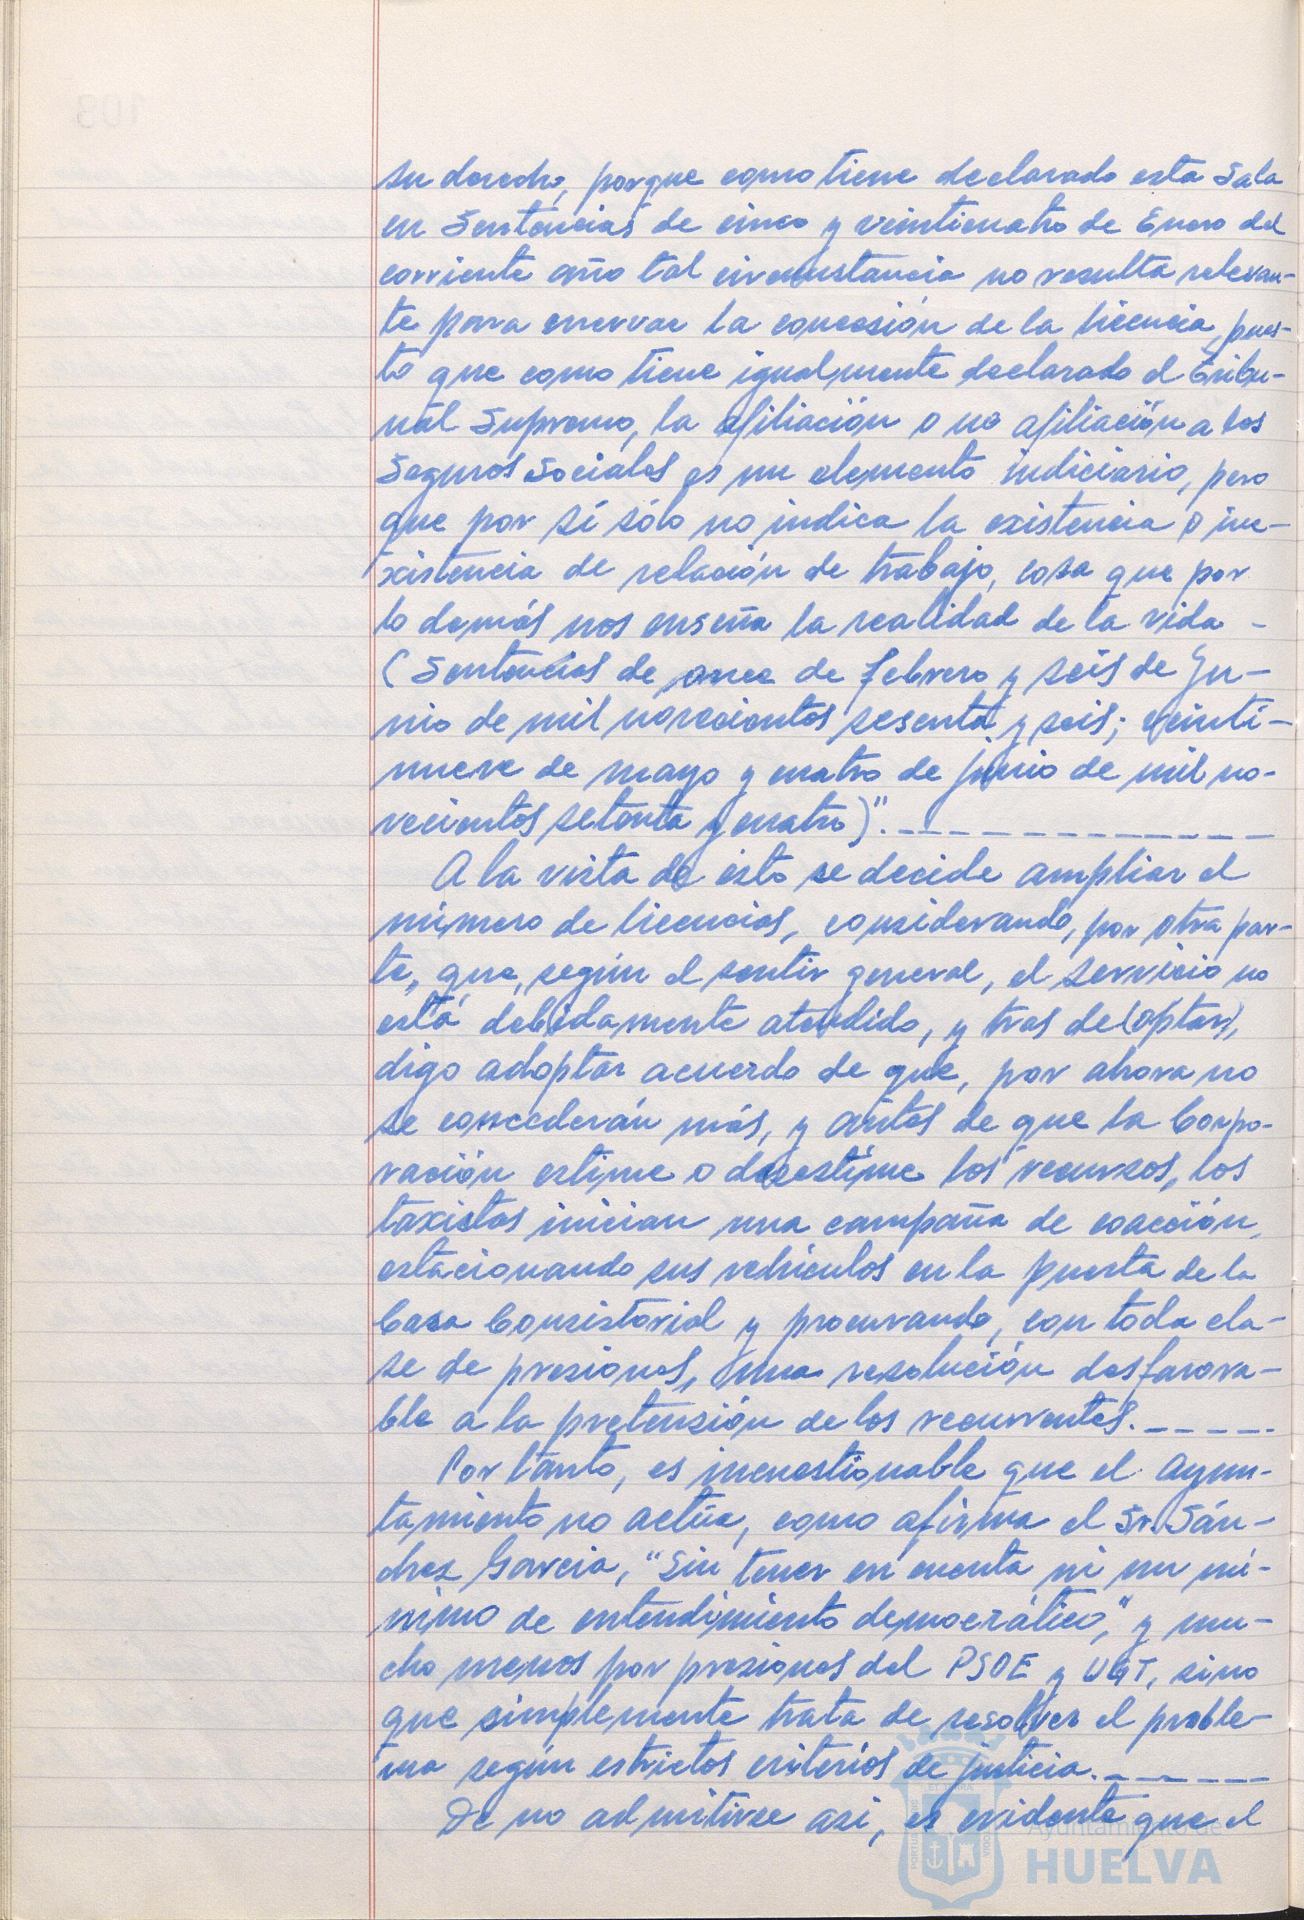 su derecho, porque como tiene declarado esta Sala
en Sentencias de cinco y veinticuatro de Enero del
corriente año tal circunstancia no resulta relevan-
te para enervar la concesión de la licencia, pues-
to que como tiene igualmente declarado el Tribu-
nal Supremo, la afiliación o no afiliación a los
Seguros Sociales es un elemento indiciario, pero
que por sí sólo no indica la existencia o ine-
xistencia de relación de trabajo, cosa que por
lo demás nos enseña la realidad de la vida -
(Sentencias de once de febrero y seis de Ju-
nio de mil novecientos sesenta y seis; veinti-
nueve de mayo y cuatro de junio de mil no-
vecientos setenta y cuatro)".
A la vista de ésto se decide ampliar el
número de licencias, considerando, por otra par-
te, que, según el sentir general, el servicio no
está debidamente atendido, y tras de (optar),
digo adoptar acuerdo de que, por ahora no
se concederán más, y antes de que la Corpo-
ración estime o desestime los recursos, los
taxistas inician una campaña de coacción,
estacionando sus vehículos en la puerta de la
Casa Consistorial y procurando, con toda cla-
se de presiones, una resolución desfavora-
ble a la pretensión de los recurrentes.
Por tanto, es incuestionable que el Ayun-
tamiento no actúa, como afirma el Sr. Sán-
chez García, "Sin tener en cuenta ni un mí-
nimo de entendimiento democrático", y mu-
cho menos por presiones del PSOE y UGT, sino
que simplemente trata de resolver el proble-
ma según estrictos criterios de justicia.
De no admitirse así, es evidente que el
Ayuntamiento de
HUELVA